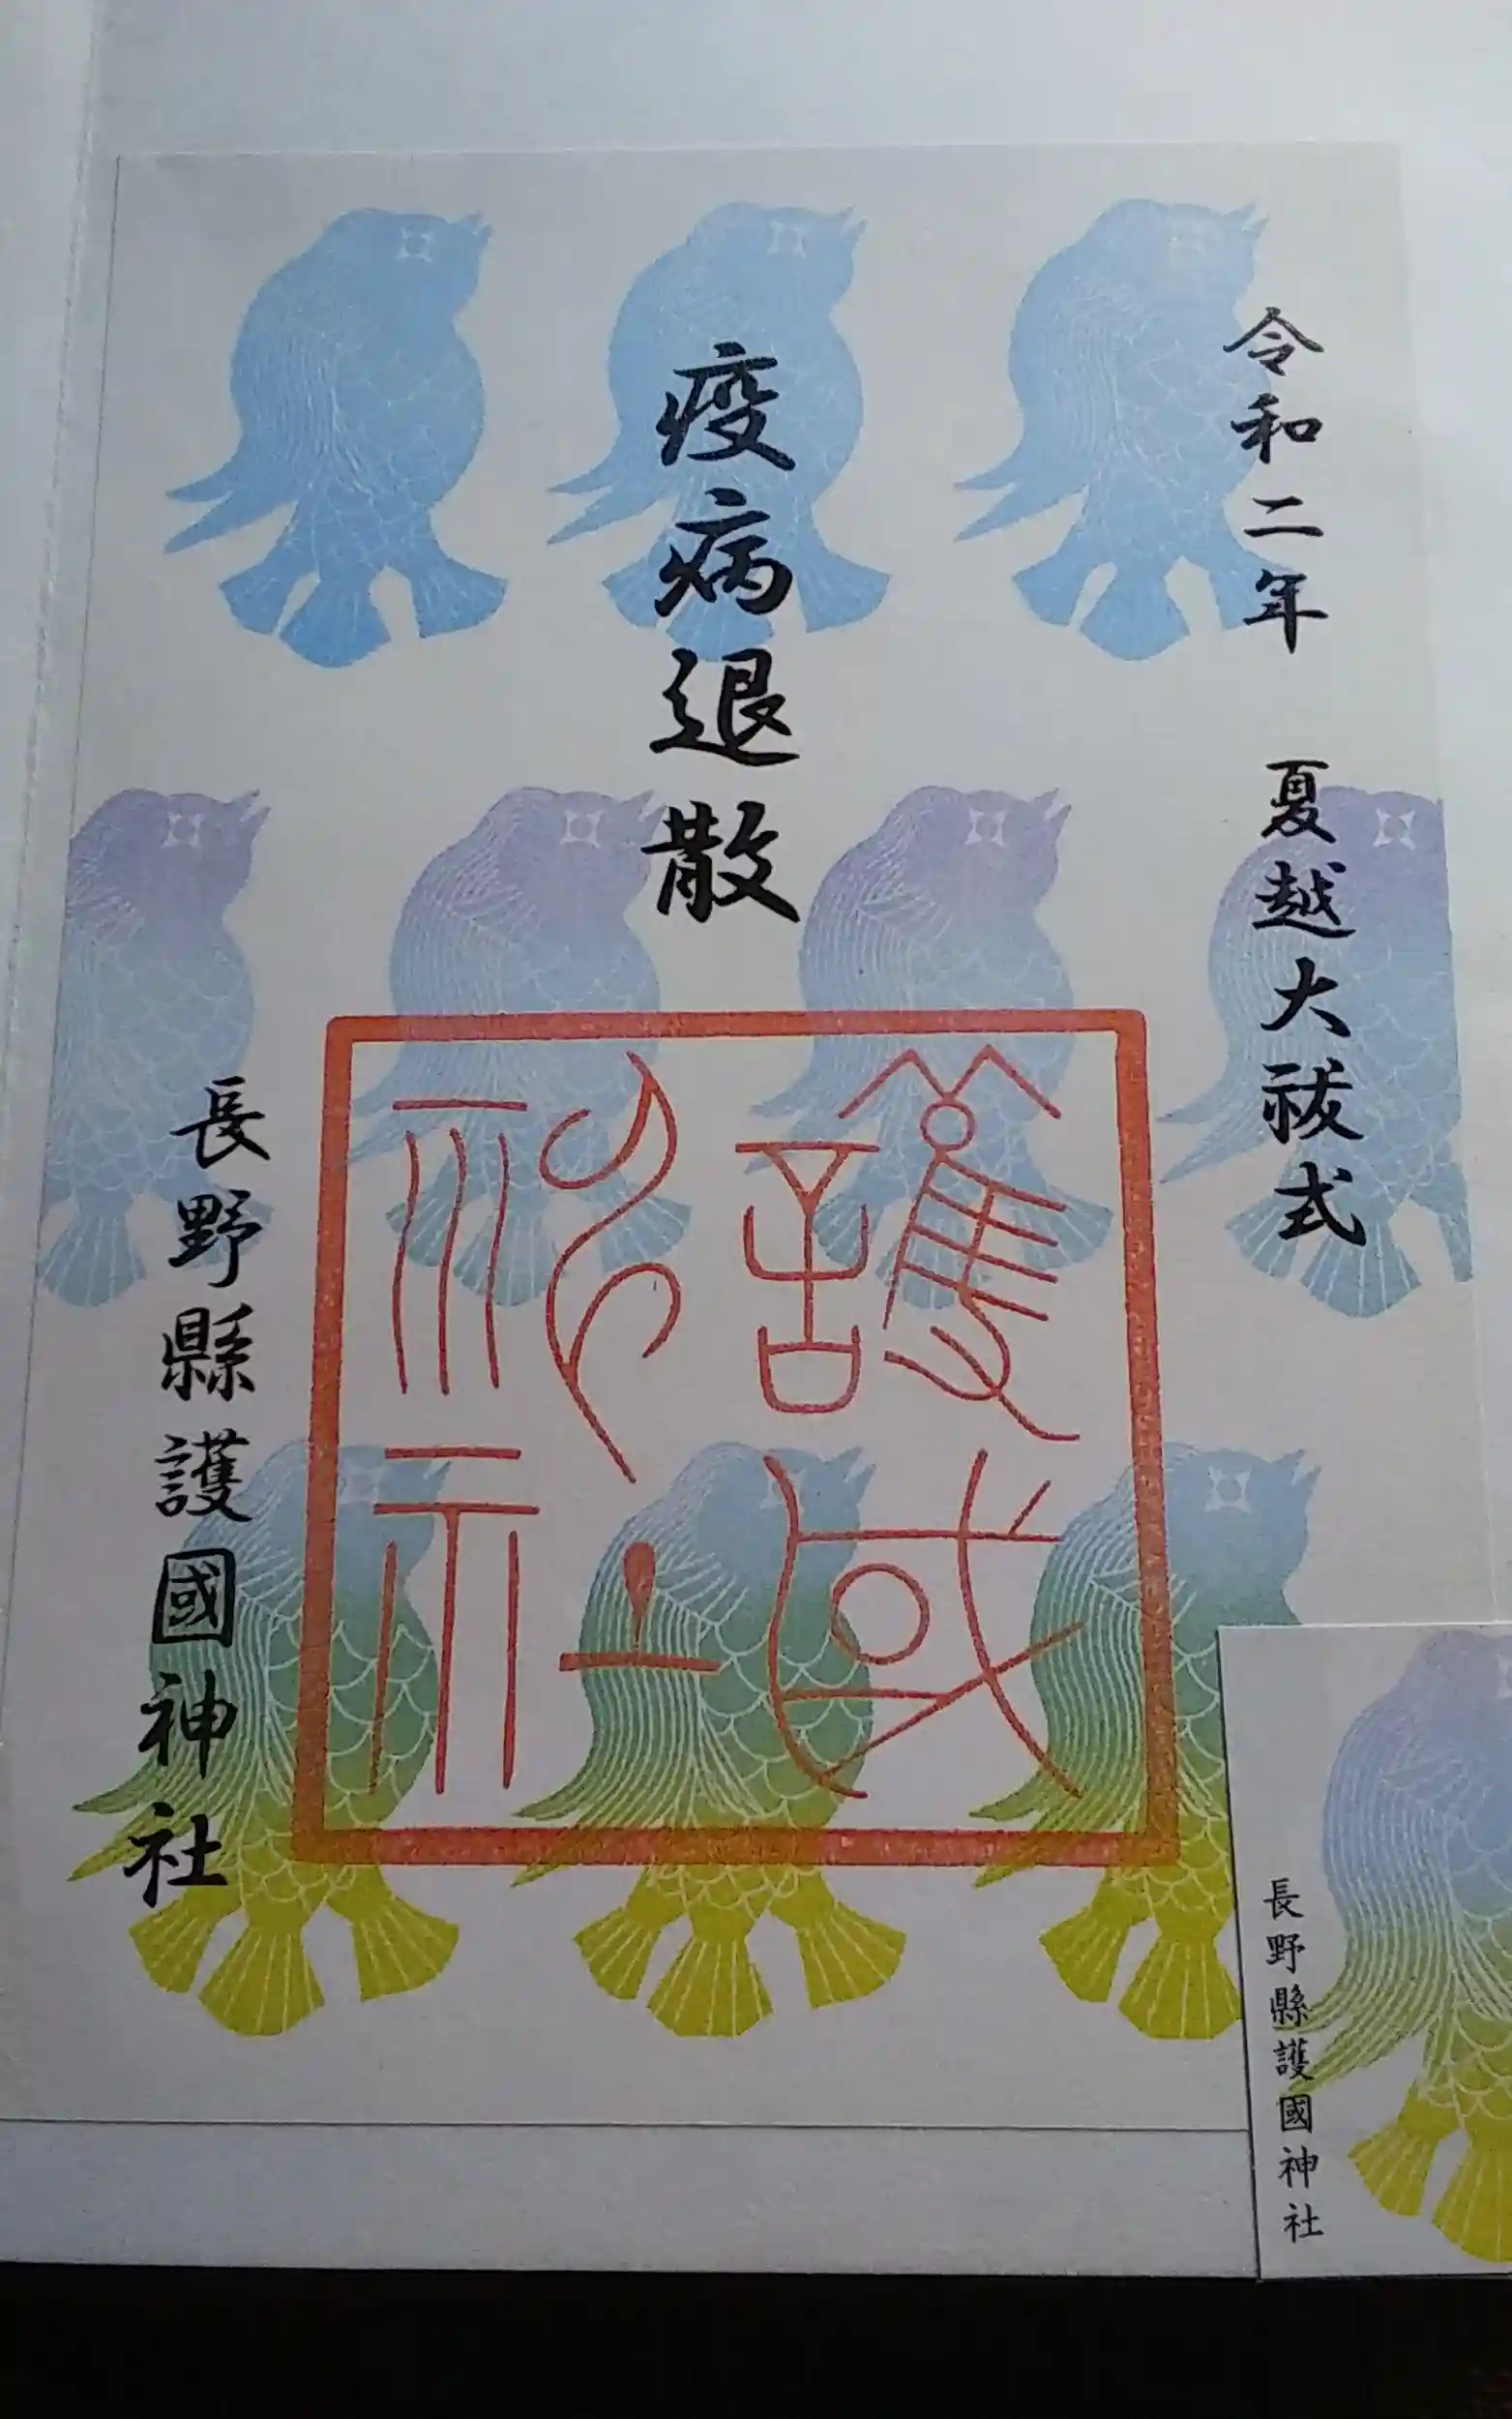 令和二年 夏越大祓式
疫病退散
護國神社
長野縣護國神社
長野縣護國神社